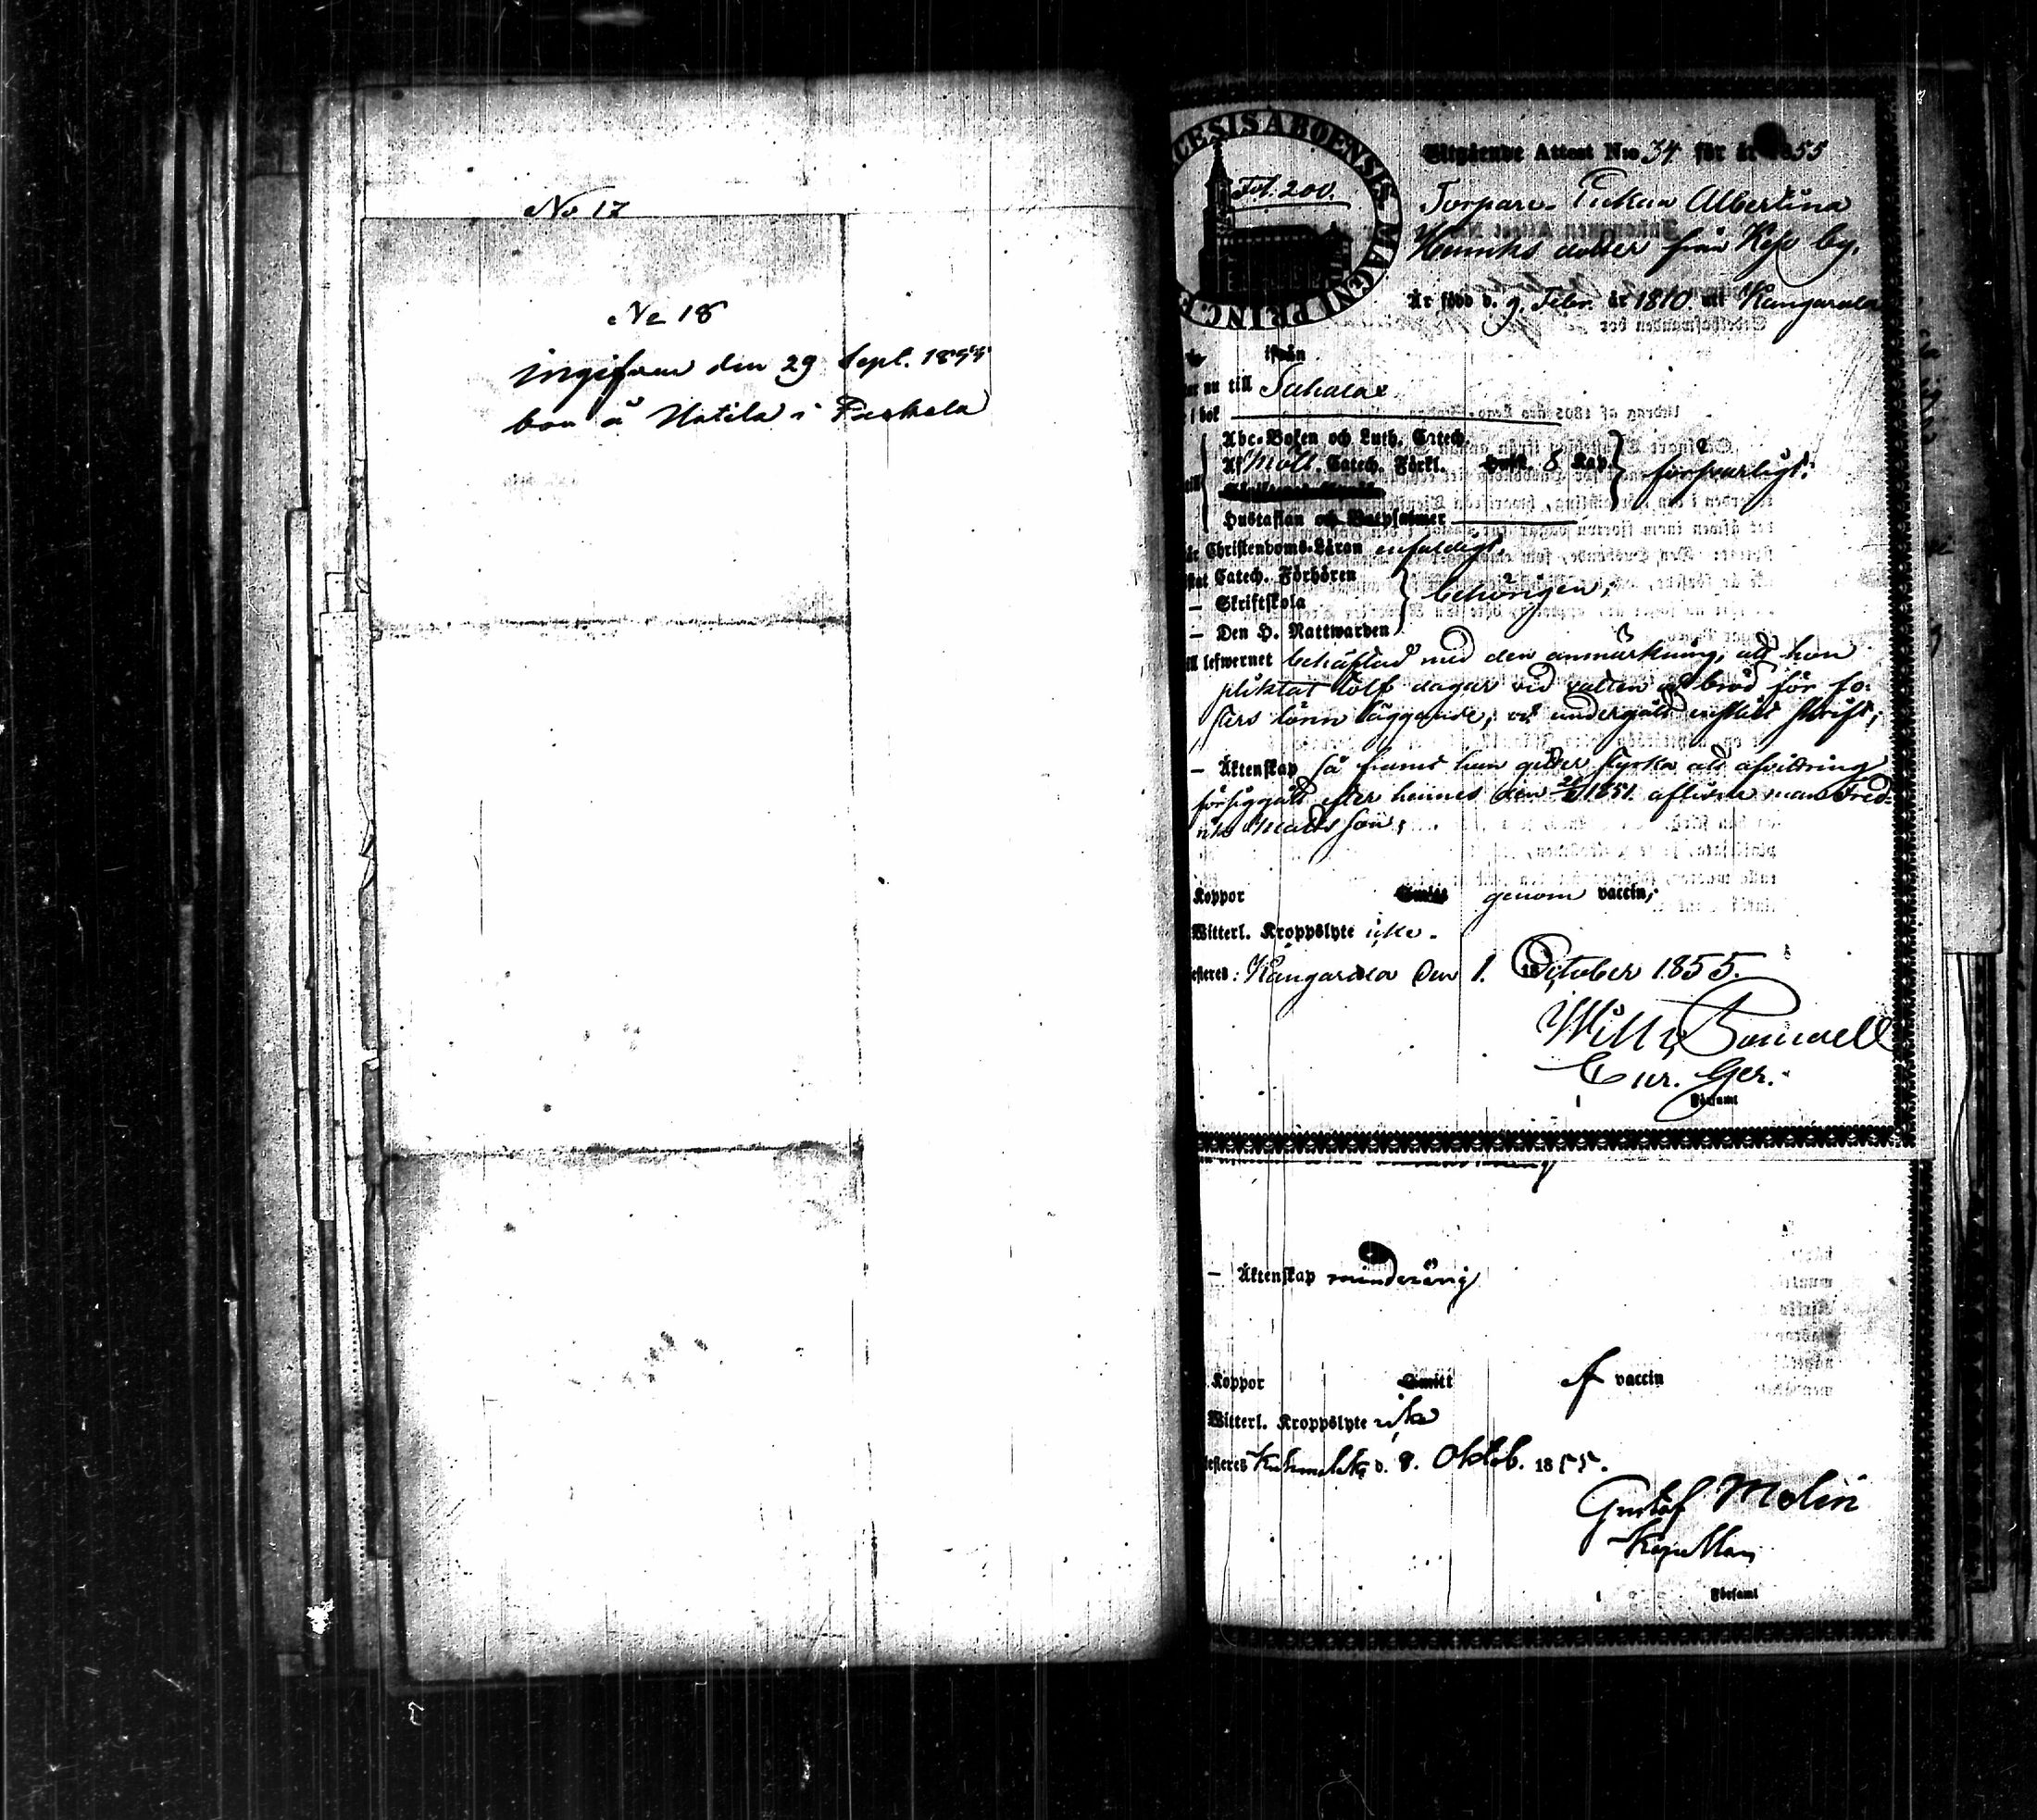 No 17
No 18
ingifven den 29 Sept. 1855
bor å Hatila i
CESIS ABOENSIS MAGNI PRINC. F
Fol. 200.
Utgående Attest N:ro 34 för år 1855
Torpare- Pickan Albertina
Henriks dotter från by.
Är född d. 9. Febr. år 1810 uti Kangasala
ifrån
nu till
i bok
Abc-Boken och Luth. Catech.
Af Möll. Catech. Förkl. 8 Kap. försvarligt.
Hustaflan och Botpsalmer
Christendoms-Läran enfaldigt
Catech. Förhören
— Skriftskola behörigen;
— Den H. Nattwarden
lefwernet behäftad med den anmärkning, att hon
pliktat tolf dagar vid vatten och bröd för fo-
sters lönn läggande; och undergått enskild skrift;
— Äktenskap så framt hon gitter styrka att afvittring
försiggått efter hennes den 1851 aflidne man Fred-
rik Mattsson;
Koppor genom vaccin;
Witterl. Kroppslyte icke.
Kangasala den 1. October 1855.
Cur. Ger.
Församl
— Äktenskap minderårig
Koppor af vaccin
Witterl. Kroppslyte icke
d. 8. Oktob. 1855.
Gustaf Molin
Kapellan
Församl